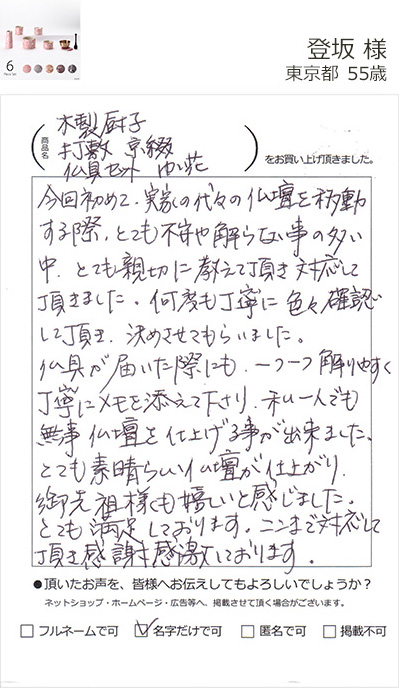 6
Piece Set
登坂 様
東京都 55歳
商品名
木製厨子
打敷 京綴
仏具セット ゆい花
をお買い上げ頂きました。
今回初めて、実家の代々の仏壇を移動
する際、とても不安や解らない事の多い
中、とても親切に教えて頂き対応して
頂きました。何度も丁寧に色々確認
して頂き、決めさせてもらいました。
仏具が届いた際にも、一つ一つ解りやすく
丁寧にメモを添えて下さり、私一人でも
無事仏壇を仕上げる事が出来ました。
とても素晴らしい仏壇が仕上がり、
御先祖様も嬉しいと感じました。
とても満足しております。ここまで対応して
頂き感謝感激しております。
●頂いたお声を、皆様へお伝えしてもよろしいでしょうか？
ネットショップ・ホームページ・広告等へ、掲載させて頂く場合がございます。
フルネームで可 名字だけで可 匿名で可 掲載不可